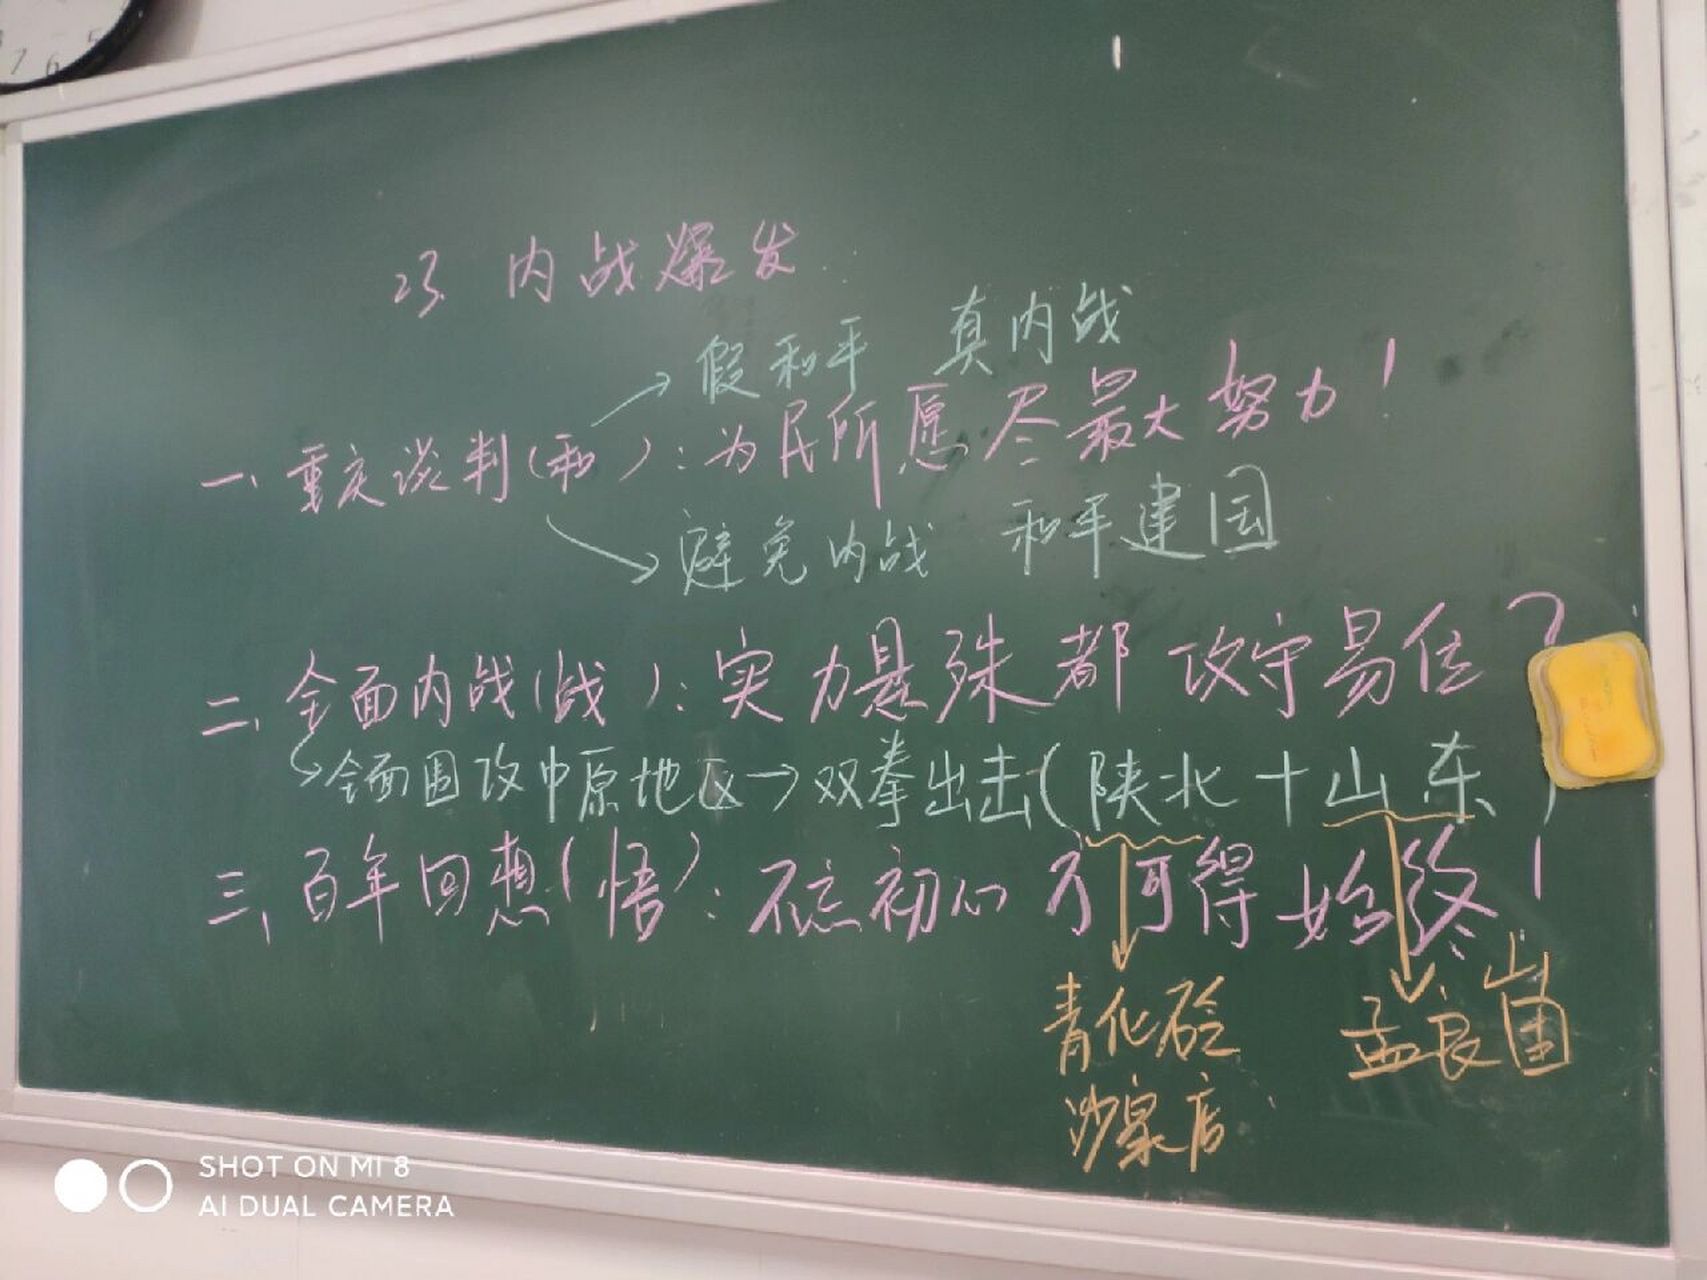 7 6 5
23. 内战爆发
→ 假和平 真内战
一、重庆谈判(和):为民所愿 尽最大努力!
→ 避免内战 和平建国
二、全面内战(战):实力悬殊 都 攻守易位?
→全面围攻中原地区→双拳出击(陕北+山东)
三、百年回想(悟):不忘初心 方可得始终!
青化砭 孟良崮
沙家店
SHOT ON MI 8
AI DUAL CAMERA